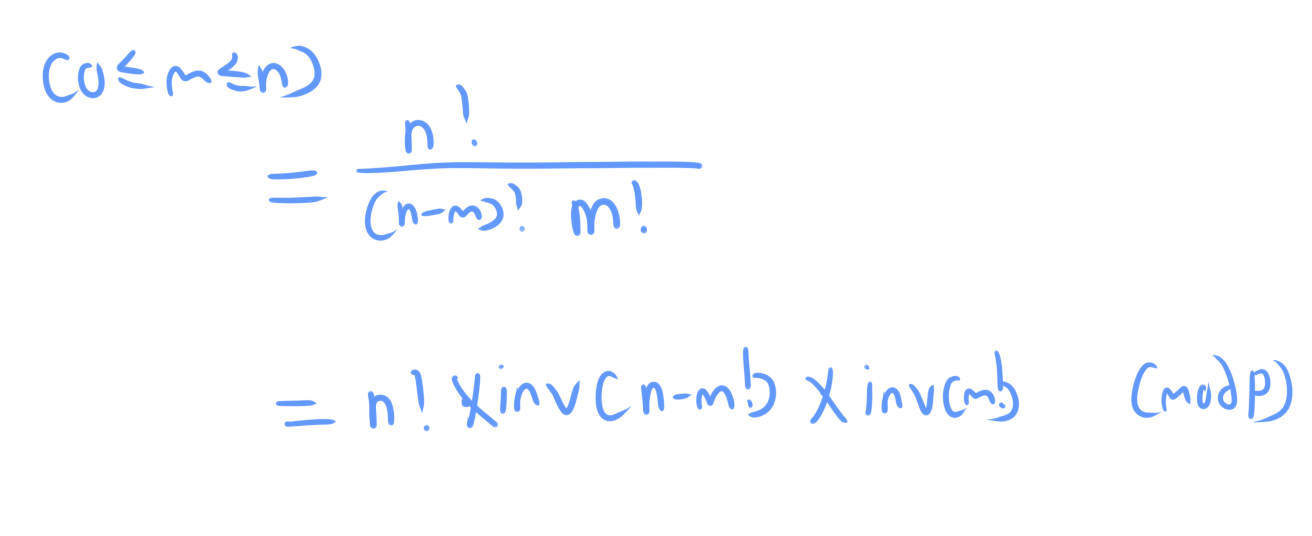 (0≤m≤n)
= n! / (n-m)! m!
= n! × inv(n-m!) × inv(m!) (mod p)